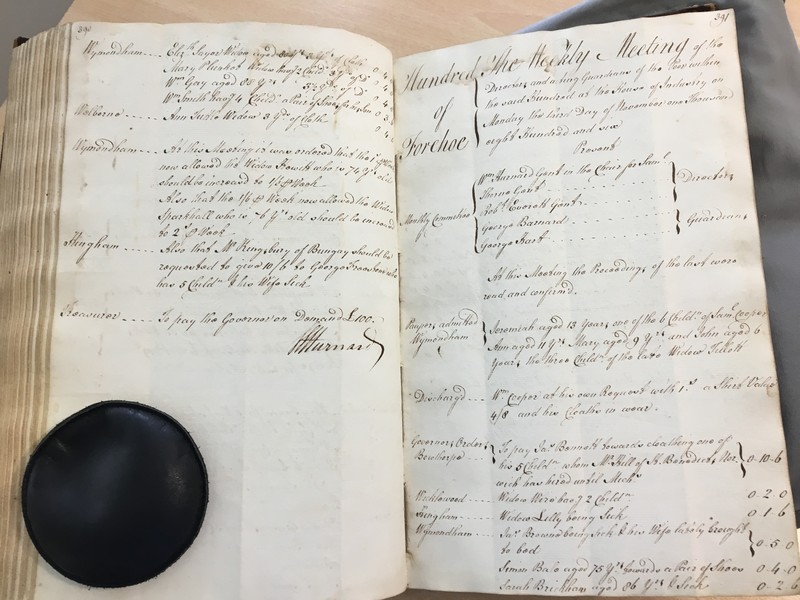 390
Wymondham ---- Eliz. Sayer Widow aged
Mary Plunket Widow hav.g 2 Child.n 3 Y.ds of D.o 0 4
W.m Gay aged 88 Y.rs 5½ Y.ds of D.o 0 4
W.m Smith hav.g 4 Child.n a Pair of Shoes 0 3
Welborne ---- Ann Widow 3 Y.ds of Cloth 0 4
Wymondham ---- At this Meeting it was ordered that the
now allowed the Widow Howitt who is 74 Y.rs old
should be increased to 1/3 ⅌ Week
Also that the 1/6 ⅌ Week now allowed the Widow
Sparkhall who is 76 Y.rs old should be increased
to 2.s ⅌ Week
Hingham ---- Also that M.r Kingsbury of Bungay should be
requested to give 10/6 to George who
has 5 Child.n & his Wife Sick
Treasurer ---- To pay the Governor on Demand £100.
Hurnard
391
Hundred of Forehoe
The Weekly Meeting of the
Directors and acting Guardians of the Poor within
the said Hundred at the House of Industry on
Monday the third Day of November one Thousand
eight Hundred and six
Present
Monthly Committee
W.m Hurnard Gent. in the Chair for Sam.l
Thorne Gent.
Rob.t Everett Gent.
Directors
George Barnard
George Hart
Guardians
At this Meeting the Proceedings of the last were
read and confirmd.
Paupers admitted
Wymondham
Jeremiah aged 13 Years one of the 6 Child.n of Sam.l Cooper
Ann aged 11 Y.rs Mary aged 9 Y.rs and John aged 6
Years the three Child.n of the late Widow Tillott
Dischargd ---- W.m Cooper at his own Request with 1.s a Shirt Value
4/8 and his Cloaths in wear.
Governors Orders
Bawthorpe ---- To pay Ja.s Bennett towards cloathing one of
his 5 Child.n whom M.r Hill of S.t Benedicts Nor
wich has hired until Mich.s 0-10-6
Wicklewood ---- Widow Wire hav.g 2 Child.n 0-2-0
Hingham ---- Widow Lilly being Sick 0 1 6
Wymondham ---- Ja.s Browne being Sick & his Wife lately brought
to bed 0-5-0
Simon Bale aged 75 Y.rs towards a Pair of Shoes 0-4-0
Sarah Brickham aged 86 Y.rs & Sick 0-2-6